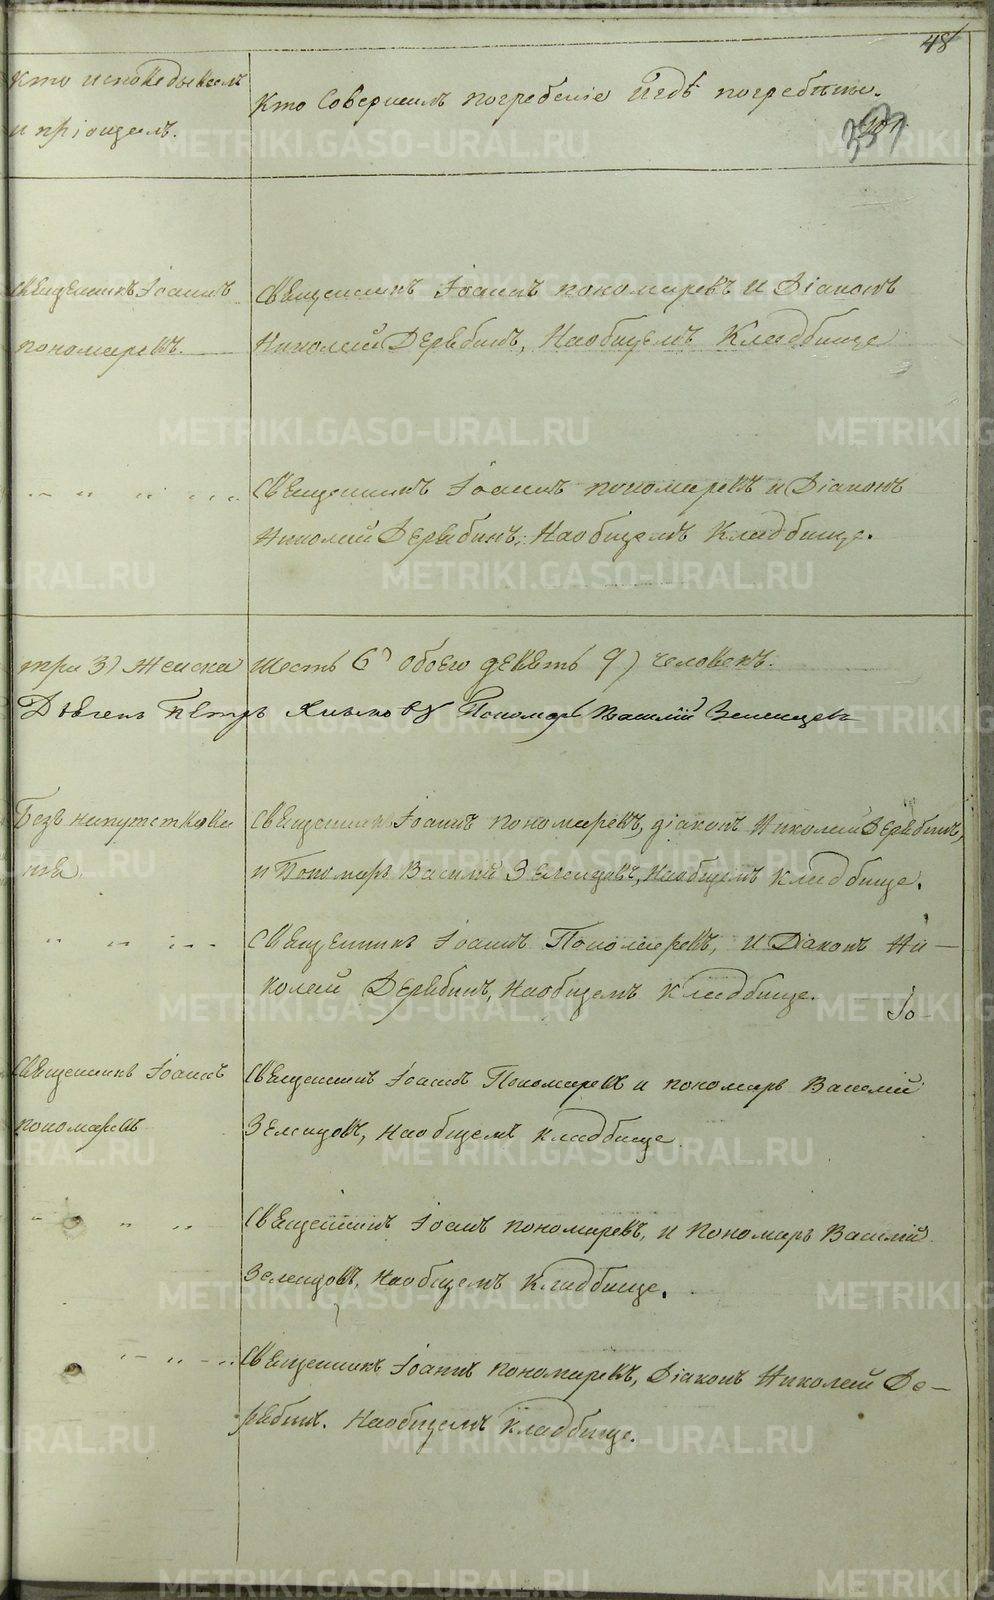 48
Кто исповедывалъ
и пріощалъ.
Кто Совершилъ погребеніе И гдѣ погребѣны.
Священникъ Іоаннъ
пономаревъ.
Священникъ Іоаннъ пономаревъ И Діаконъ
Николай Дерябинъ, На общемъ Кладбище
Священникъ Іоаннъ пономаревъ и Діаконъ
Николай Дерябинъ, На общемъ Кладбище.
три 3) Женска шесть 6) обоего девять 9) человекъ.
Дьячекъ Петръ Пономарь Василій Зеленцовъ
Безъ напутствова
нія.
Священникъ Іоаннъ пономаревъ, діаконъ Николай Дерябинъ,
и Пономарь Василий Зеленцовъ, На общемъ Кладбище.
Священникъ Іоаннъ Пономаревъ, И Діаконъ Ни-
колай Дерябинъ, На общемъ Кладбище.
Іо-
Священникъ Іоаннъ
пономаревъ
Священникъ Іоаннъ Пономаревъ и пономарь Василий
Зеленцовъ, На общемъ кладбище
Священникъ Іоаннъ пономаревъ, и Пономарь Василій
Зеленцовъ, На общемъ Кладбище.
Священникъ Іоаннъ пономаревъ, Діаконъ Николай Де-
рябинъ. На общемъ Кладбище.
METRIKI.GASO-URAL.RU